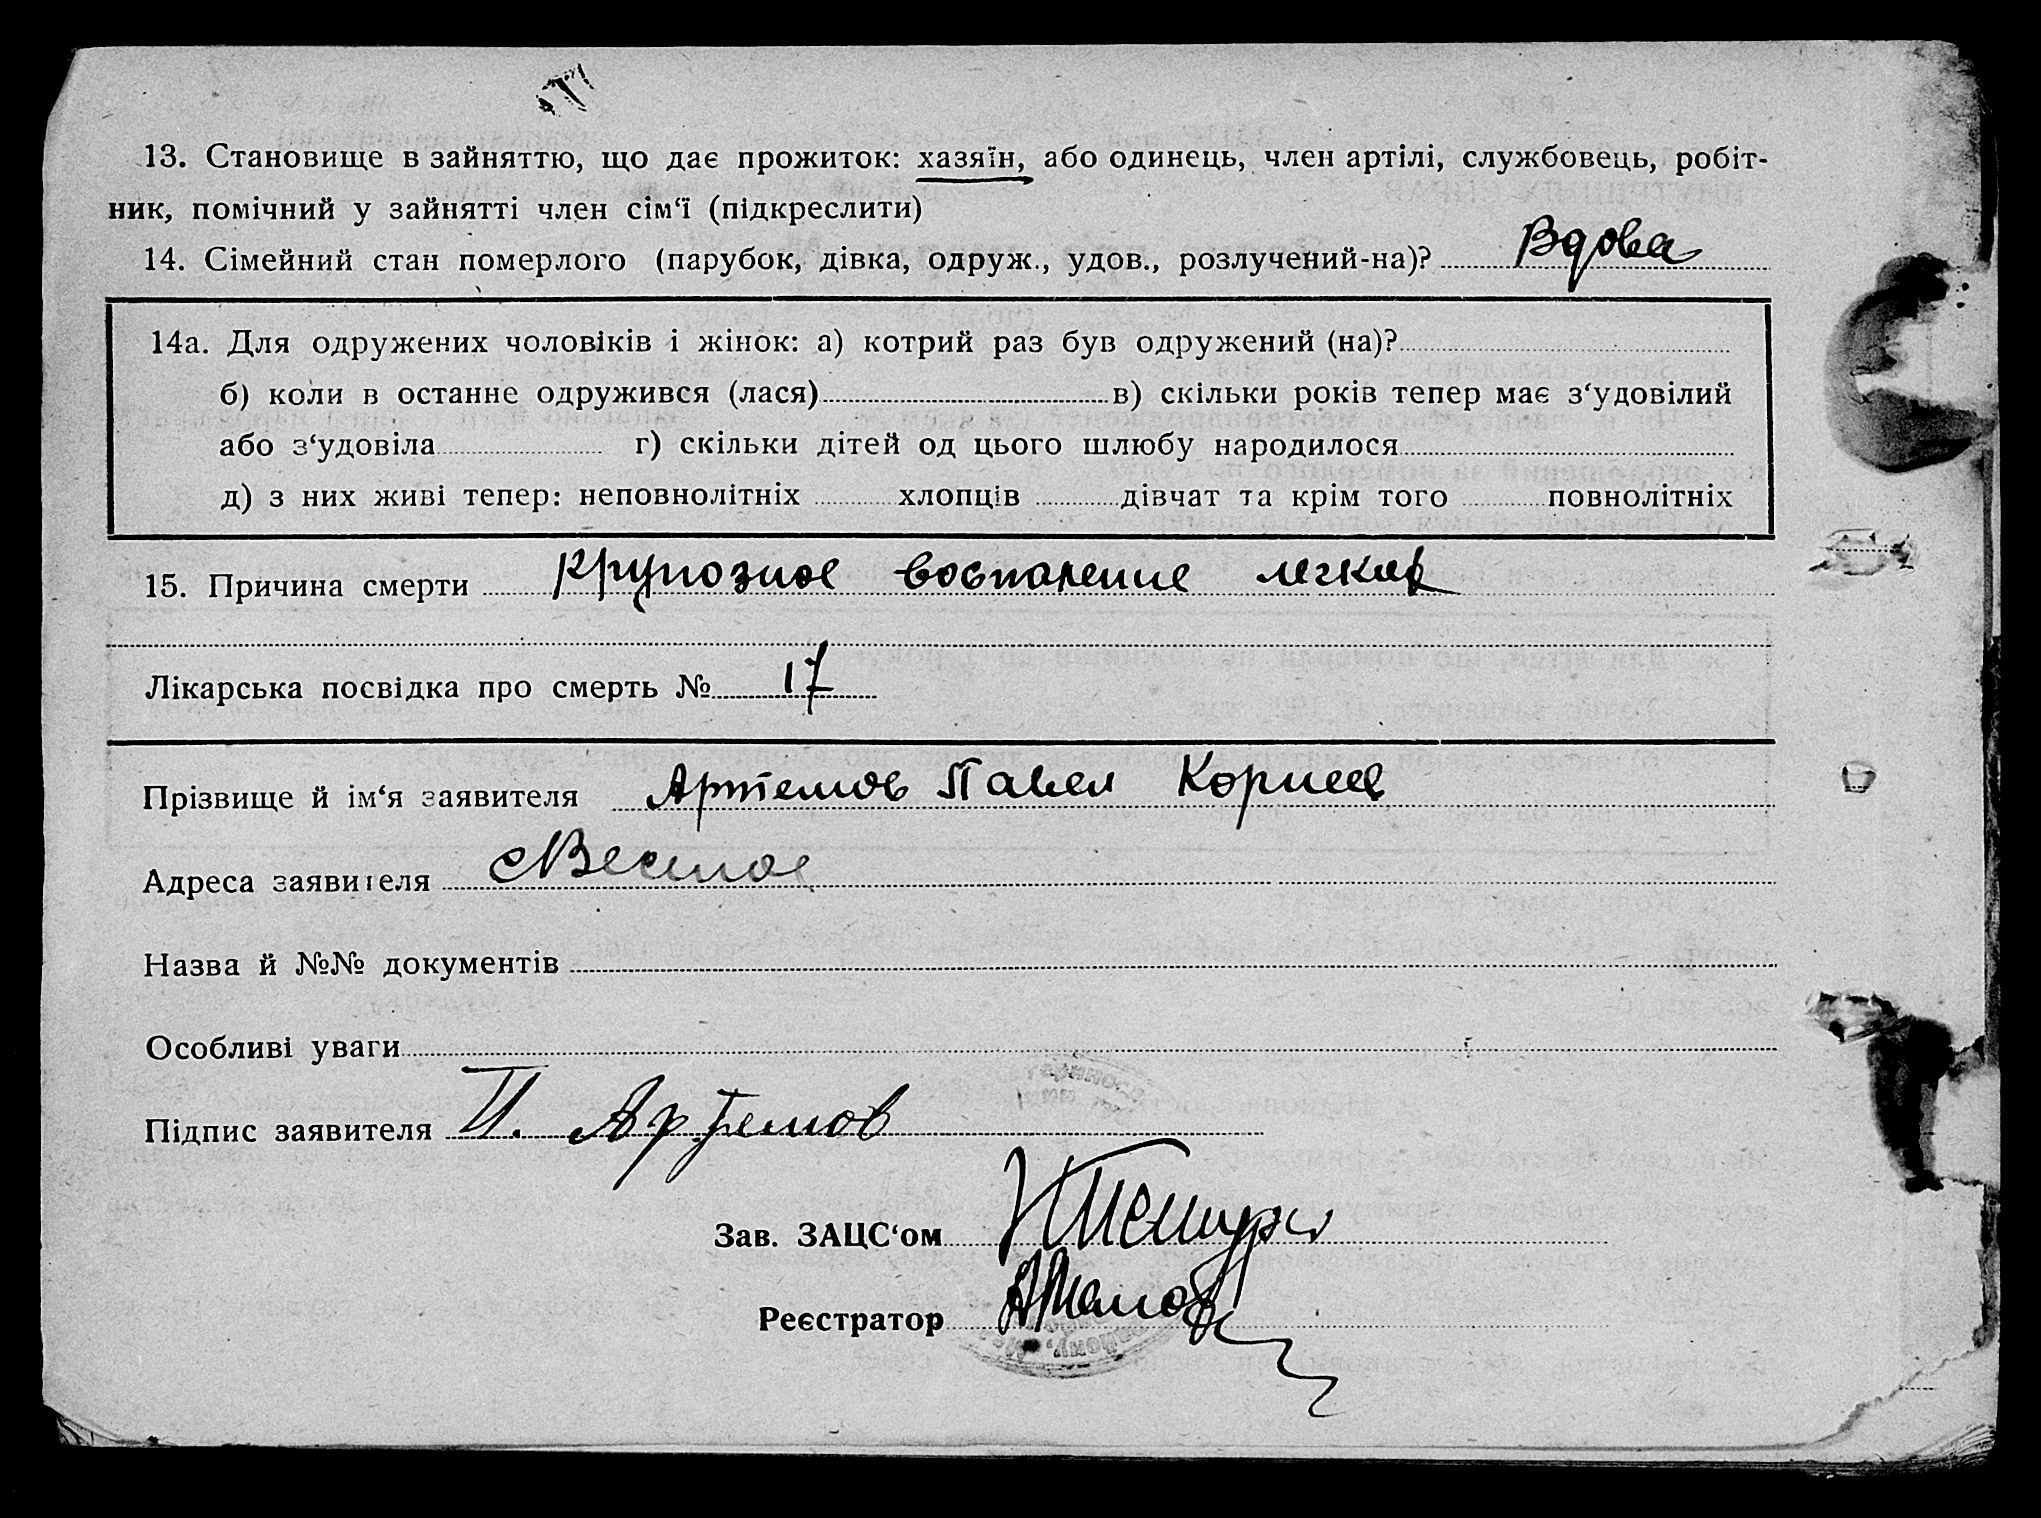 13. Становище в зайняттю, що дає прожиток: хазяїн, або одинець, член артілі, службовець, робіт-
ник, помічний у зайнятті член сім‘ї (підкреслити)
14. Сімейний стан померлого (парубок, дівка, одруж., удов., розлучений-на)? Вдова
14а. Для одружених чоловіків і жінок: а) котрий раз був одружений (на)?
б) коли в останне одружився (лася) в) скільки років тепер має з‘удовілий
або з‘удовіла г) скільки дітей од цього шлюбу народилося
д) з них живі тепер: неповнолітніх хлопців дівчат та крім того повнолітніх
15. Причина смерти крупозное воспаление легких
Лікарська посвідка про смерть № 17
Прізвище й ім‘я заявителя Артемов Павел Корнеев
Адреса заявителя
Назва й №№ документів
Особливі уваги
Підпис заявителя П. Артемов
Зав. ЗАЦС‘ом
Реєстратор